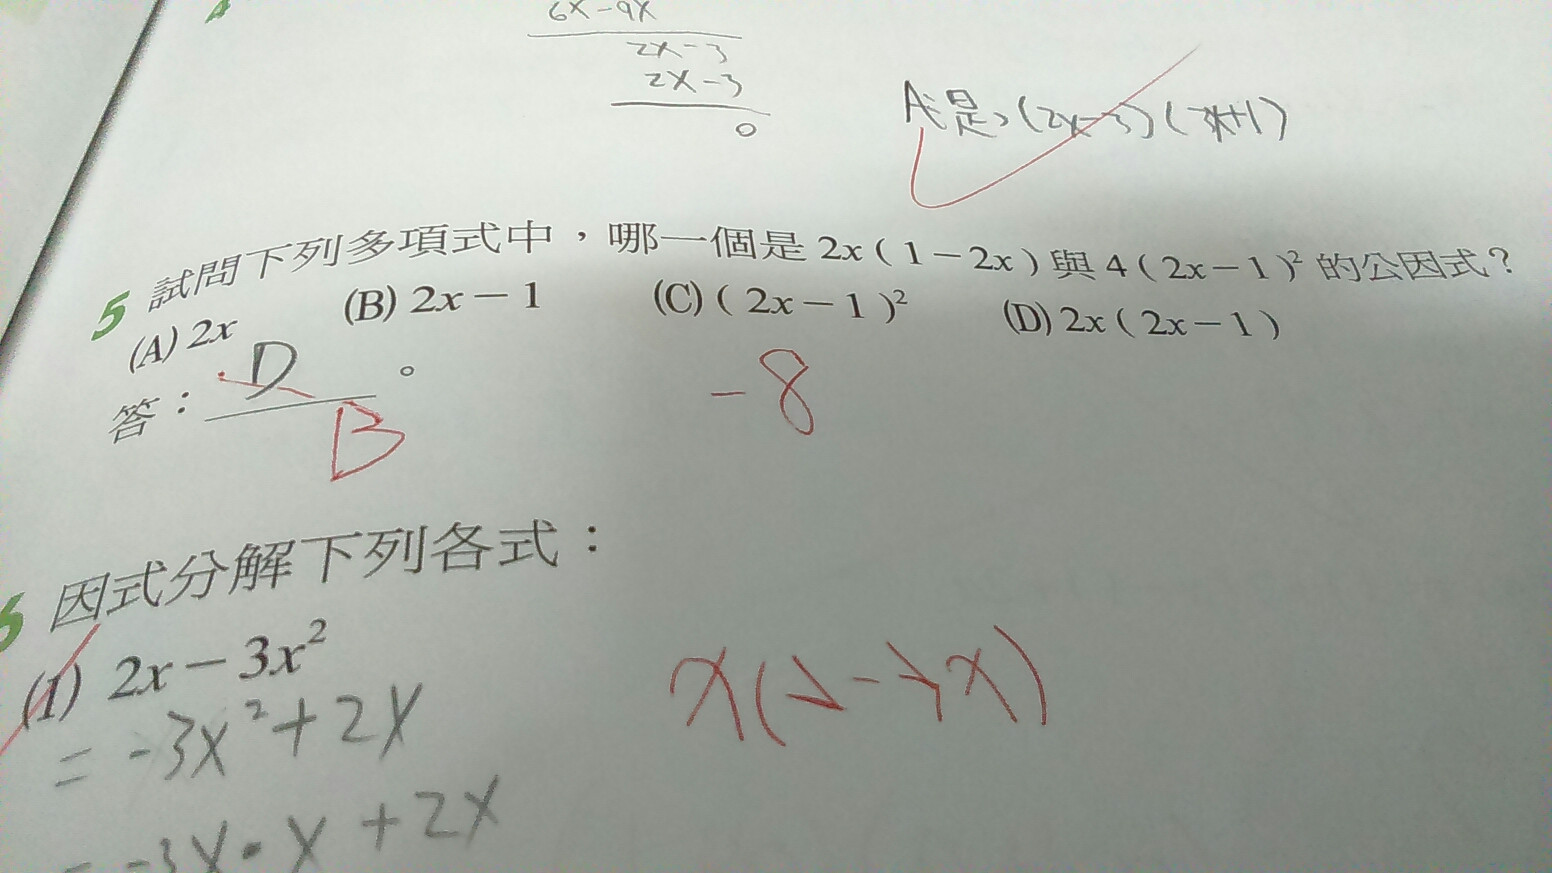 6x-9x
2x-3
2x-3
0
A:是,(2x-3)(3x+1)
5 試問下列多項式中，哪一個是 2x(1-2x)與 4(2x-1)² 的公因式？
(A) 2x (B) 2x-1 (C) (2x-1)² (D) 2x(2x-1)
答： D 。
B
-8
6 因式分解下列各式：
(1) 2x-3x²
x(2-3x)
= -3x²+2x
= -3x·x+2x